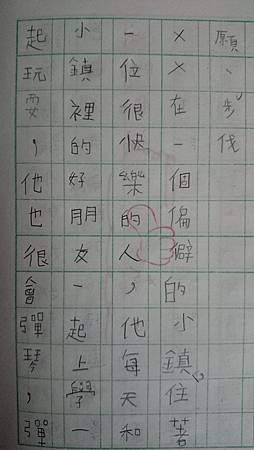 願、步伐
××在一個偏僻的小鎮住著
一位很快樂的人，他每天和
小鎮裡的好朋友一起上學一
起玩耍，他也很會彈琴，彈